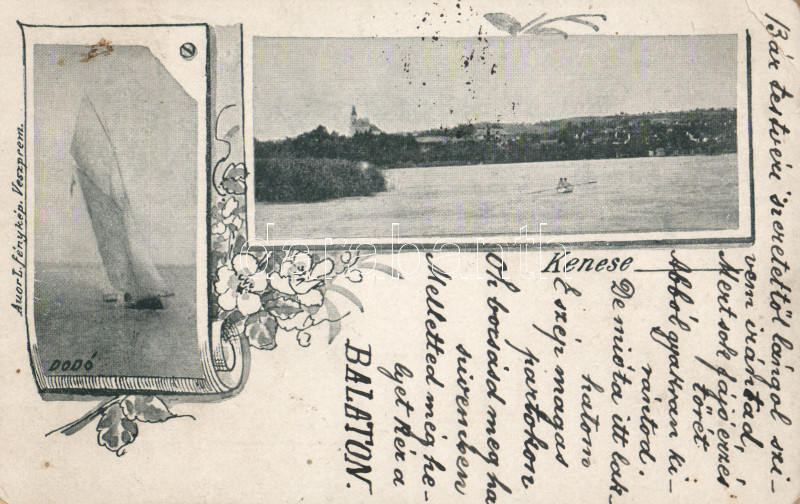 Auor I. fénykép. Veszprém.
DODÓ
Kenese
BALATON.
Bár testvéri szeretettől lángol szi-
vem irántad,
Mert sok fájó érzés
tőrét
Abból gyakran ki-
rántod.
De mióta itt lát-
hatom
E szép magas
partokon
Óh bocsásd meg ha
szivemben
Melletted még he-
lyet kér a
darabanth